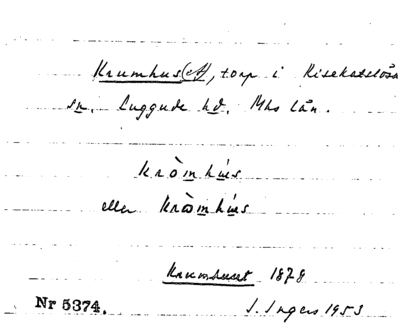 Krumhus(et), torp i Risekatslösa
sn. Luggude hd. Mhs län.
Kròmhús
eller Kròmhús
Krumhuset 1878
Nr 5374. I. Ingers 1953